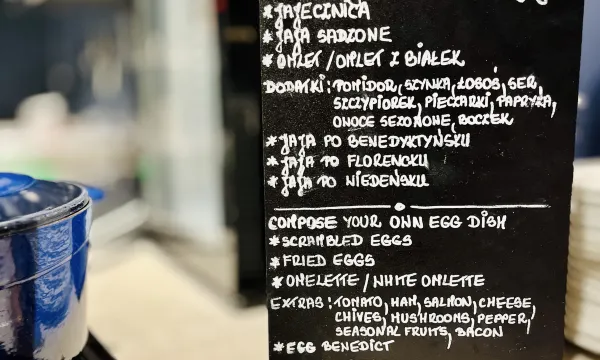 * JAJECZNICA
* JAJA SADZONE
* OMLET / OMLET Z BIAŁEK
DODATKI: POMIDOR, SZYNKA, ŁOSOŚ, SER,
SZCZYPIOREK, PIECZARKI, PAPRYKA,
OWOCE SEZONOWE, BOCZEK
* JAJA PO BENEDYKTYŃSKU
* JAJA PO FLORENCKU
* JAJA PO WIEDEŃSKU
COMPOSE YOUR OWN EGG DISH
* SCRAMBLED EGGS
* FRIED EGGS
* OMELETTE / WHITE OMLETTE
EXTRAS: TOMATO, HAM, SALMON, CHEESE,
CHIVES, MUSHROOMS, PEPPER,
SEASONAL FRUITS, BACON
* EGG BENEDICT